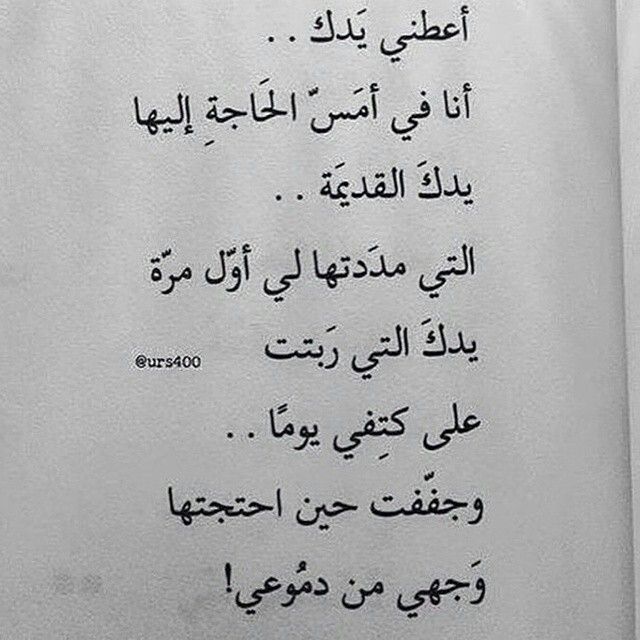 أعطني يَدك . .
أنا في أمَسّ الحَاجةِ إليها
يدكَ القديمَة . .
التي مدَدتها لي أوّل مرّة
يدكَ التي رَبتت
@urs400
على كتِفي يومًا . .
وجفّفت حين احتجتها
وَجهي من دمُوعي!